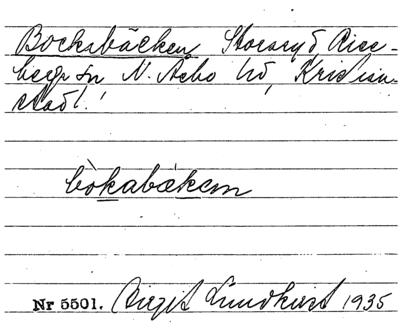 Bockabäcken Storaryd Risebergs
sn N. Åsbo hd, Kristian-
stad l.
bòkabækɛn
Nr 5501. Birgit Lundkvist 1935